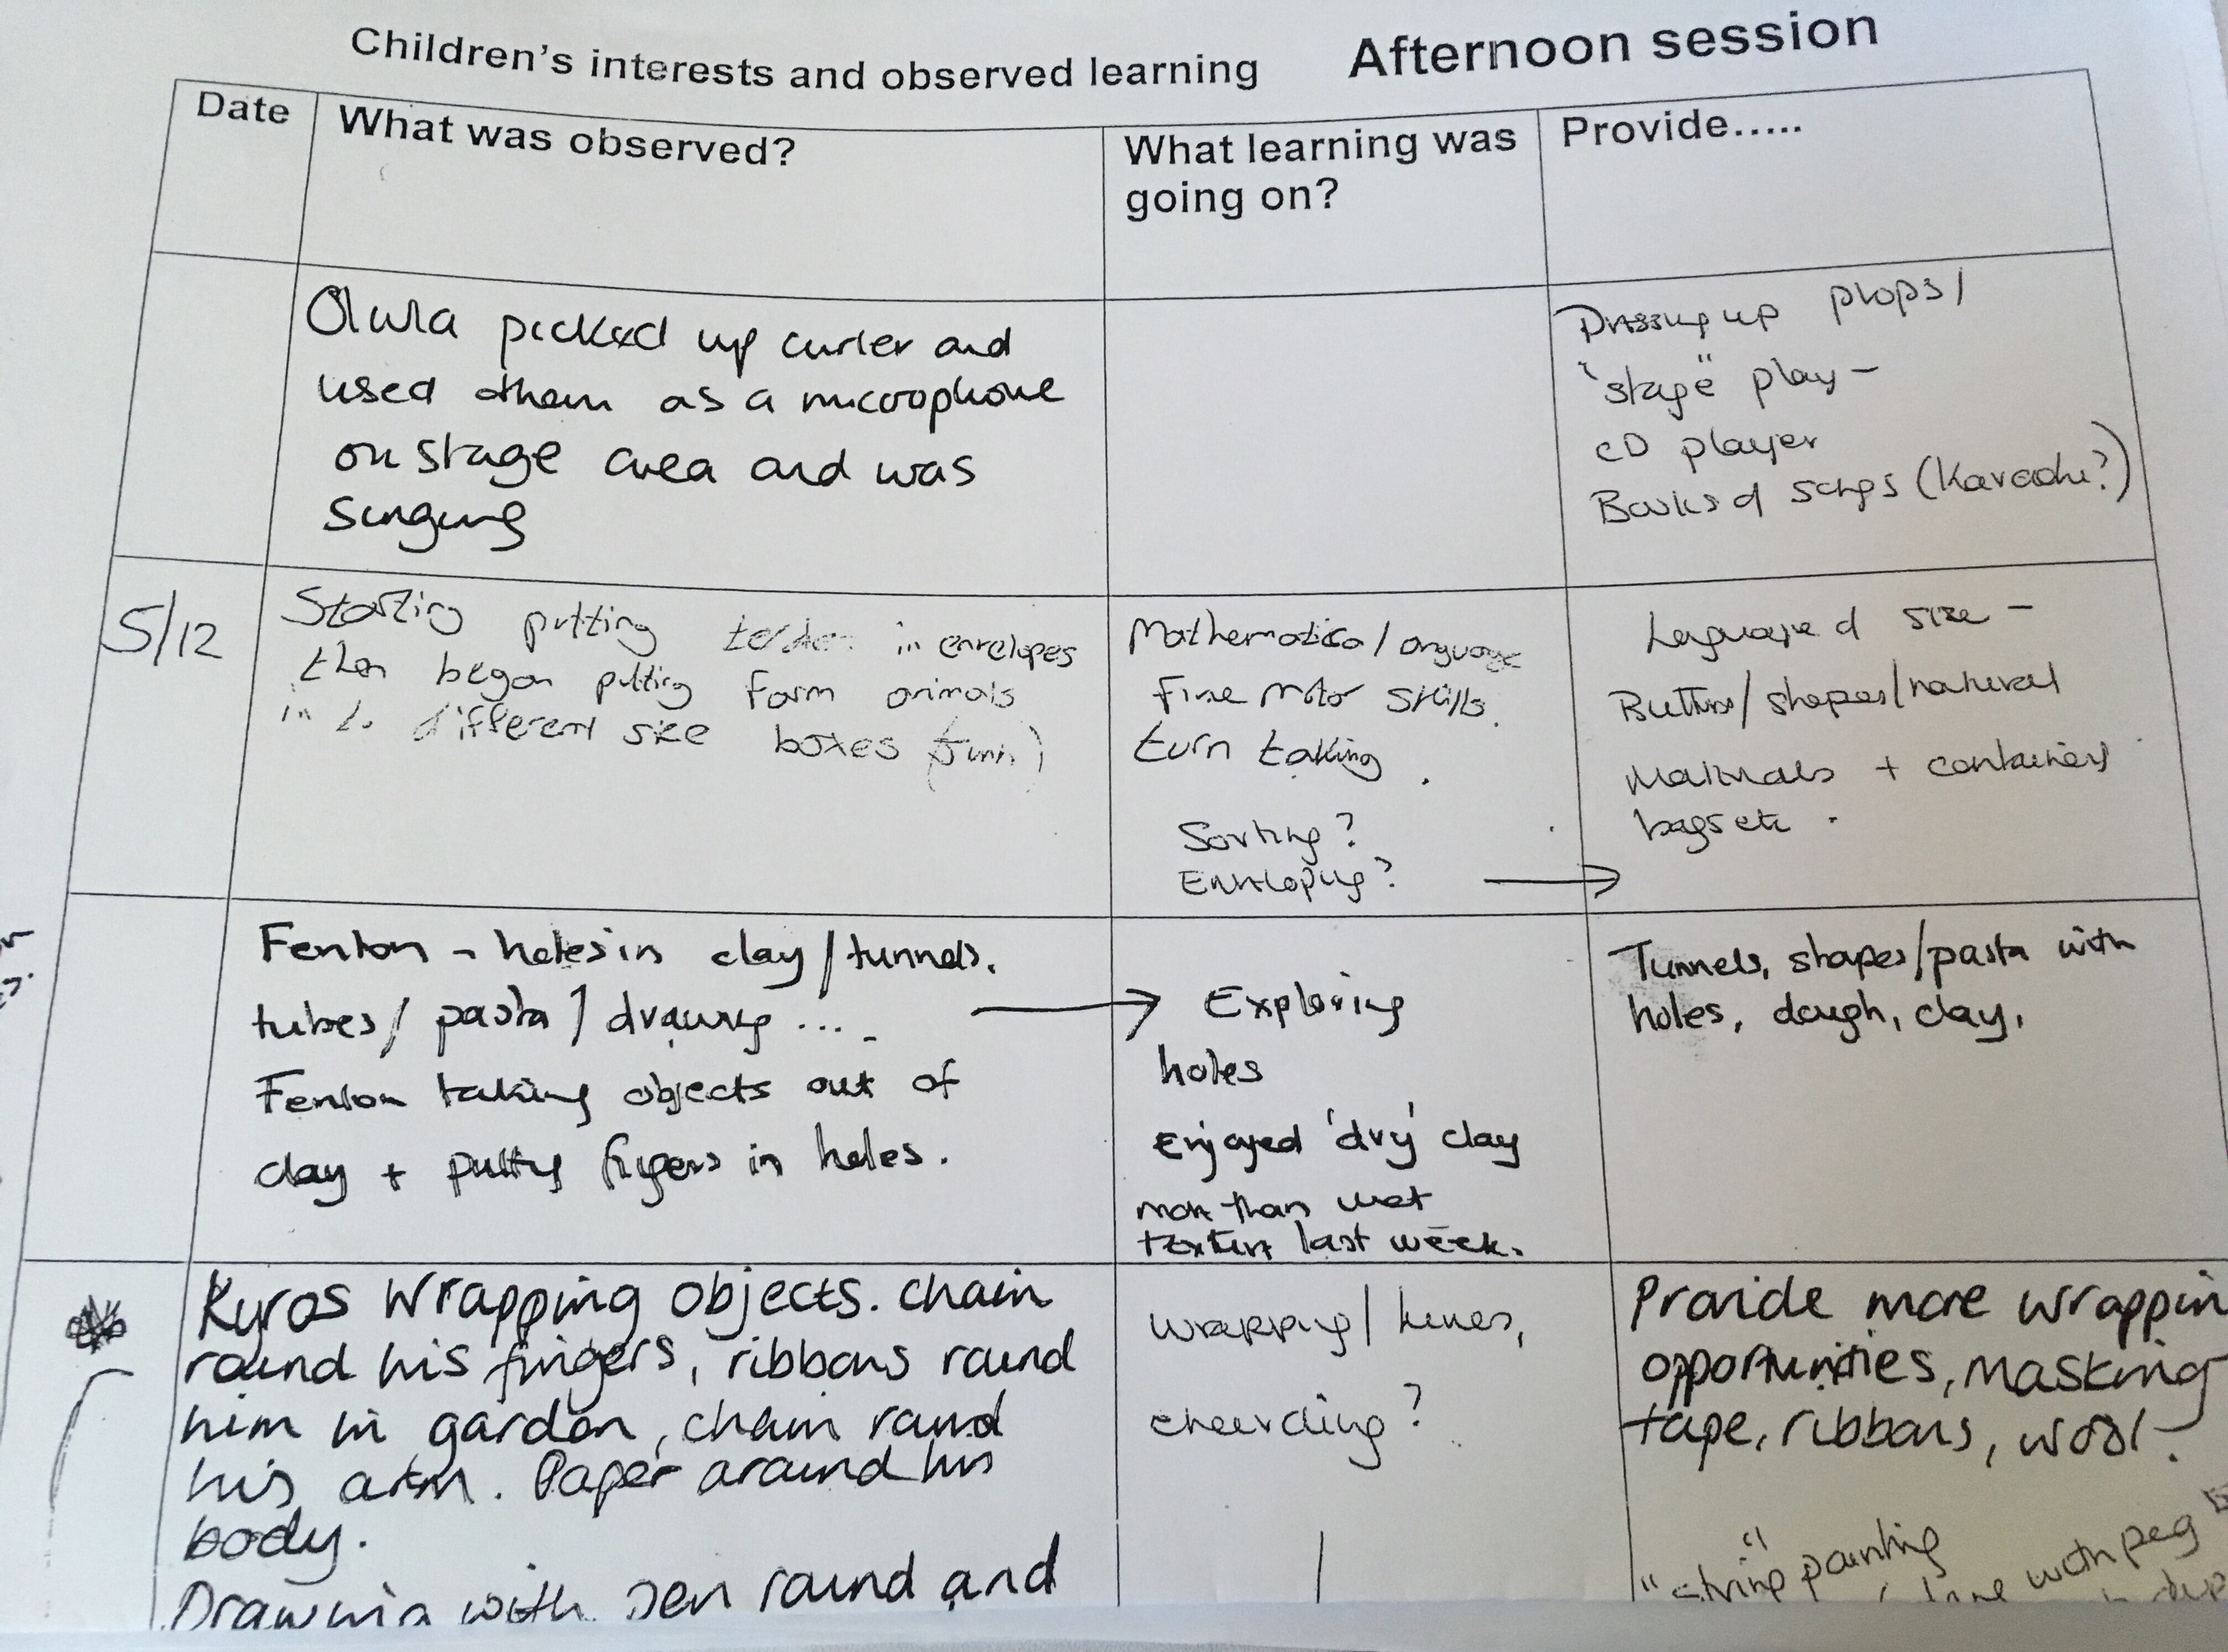 Children's interests and observed learning
Afternoon session
Date
What was observed?
What learning was
going on?
Provide.....
picked up curler and
used them as a microphone
on stage area and was
singing
Dressing up props/
"stage" play -
CD player
Books of songs (Karaoke?)
5/12
Starting putting in envelopes
then began putting farm animals
in different size boxes
Mathematical language
fine motor skills.
turn taking.
Sorting?
Enveloping?
Language of size -
Buttons/shapes/natural
Materials + containers
bags etc.
Fenton - holes in clay/tunnels.
tubes/pasta/drawing ....
Fenton taking objects out of
clay + putting fingers in holes.
Exploring
holes
Enjoyed 'dry' clay
more than wet
texture last week.
Tunnels, shapes/pasta with
holes, dough, clay,
Kyros wrapping objects. chain
round his fingers, ribbons round
him in garden, chain round
his arm. Paper around his
body.
Drawing with pen round and
wrapping/
Provide more wrappin
opportunities, masking
tape, ribbons, wool.
"string painting"
with peg